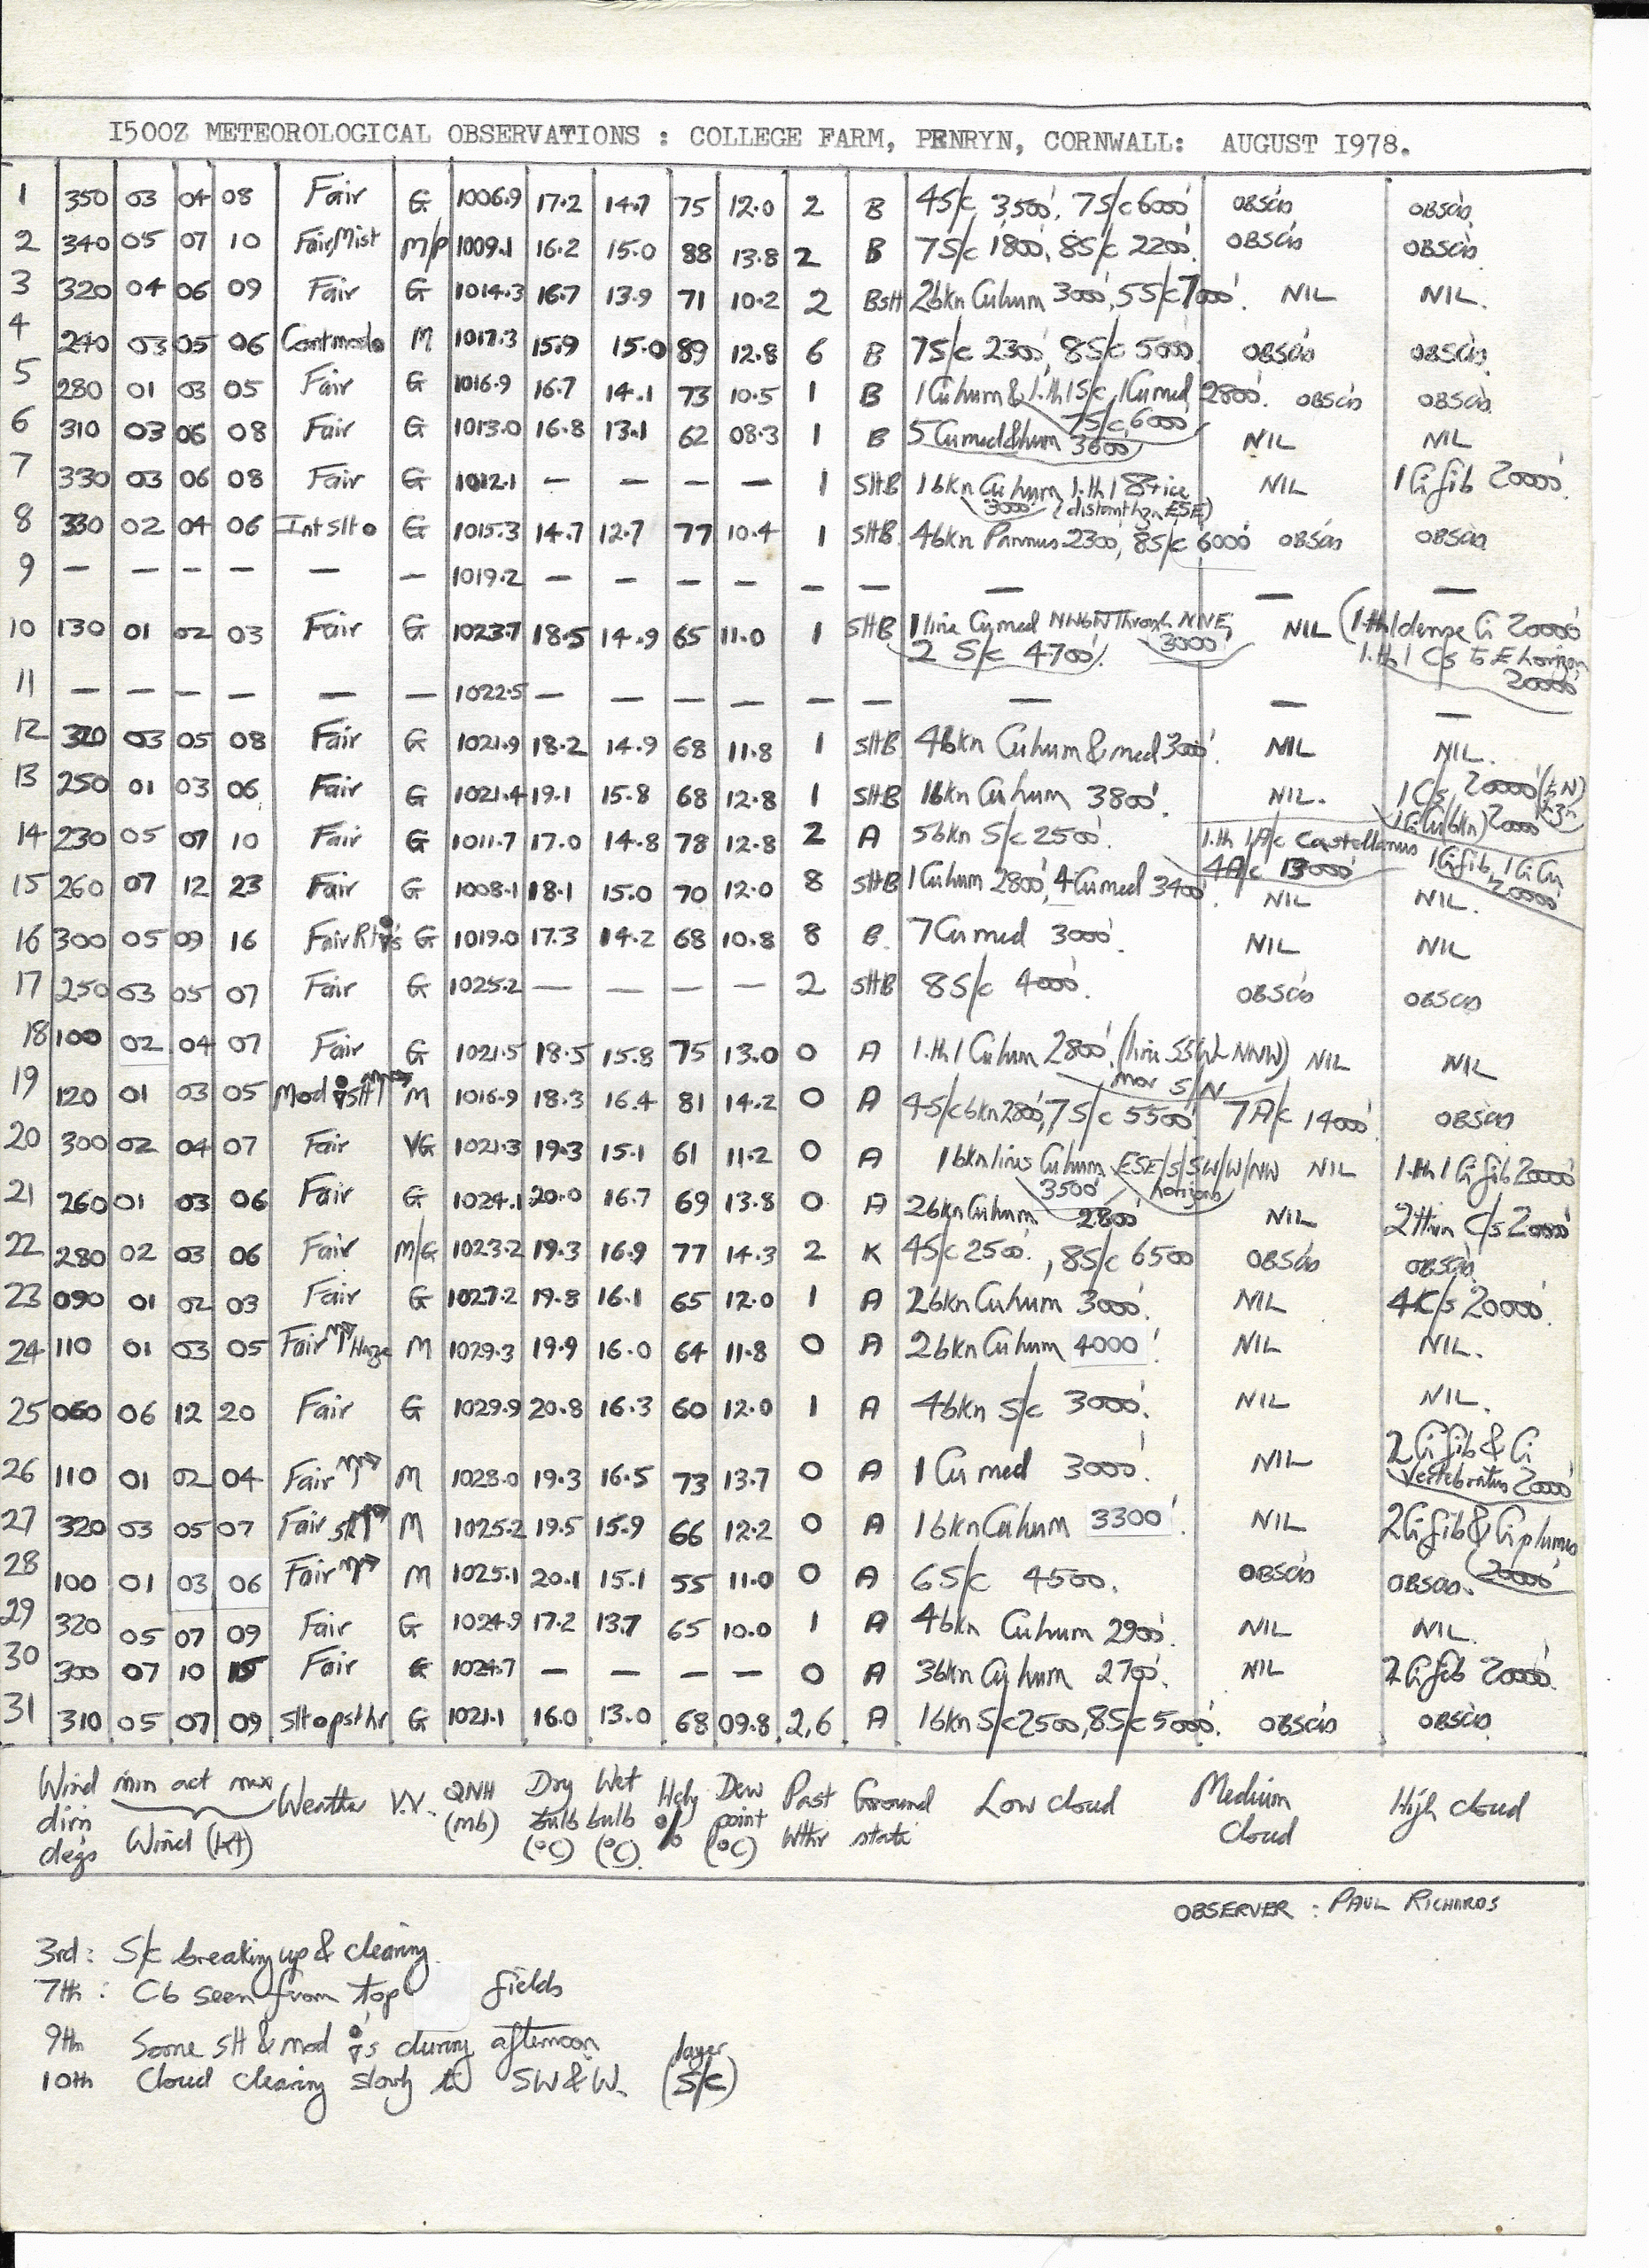 1500Z METEOROLOGICAL OBSERVATIONS : COLLEGE FARM, PENRYN, CORNWALL: AUGUST 1978.
1 350 03 04 08 Fair G 1006.9 17.2 14.7 75 12.0 2 B 4S/c 3500', 7S/c 6000' OBSCÙS OBSCÙS
2 340 05 07 10 Fair/Mist M/P 1009.1 16.2 15.0 88 13.8 2 B 7S/c 1800', 8S/c 2200' OBSCÙS OBSCÙS
3 320 04 06 09 Fair G 1014.3 16.7 13.9 71 10.2 2 BSH 2bkn Cu hum 3000', 5S/c 7000'. NIL NIL.
4 240 03 05 06 Contmod M 1017.3 15.9 15.0 89 12.8 6 B 7S/c 2300', 8S/c 5000' OBSCÙS OBSCÙS
5 280 01 03 05 Fair G 1016.9 16.7 14.1 73 10.5 1 B 1Cu hum & 1.th 1S/c, 1Cu med 2800'. 7S/c 6000' OBSCÙS OBSCÙS
6 310 03 06 08 Fair G 1013.0 16.8 13.1 62 08.3 1 B 5 Cu med & hum 3600' NIL NIL
7 330 03 06 08 Fair G 1012.1 — — — — 1 SHB 1bkn Cu hum 3000' 1.th 1 (distant ESE) NIL 1Ci fib 20000'.
8 330 02 04 06 Int slt G 1015.3 14.7 12.7 77 10.4 1 SHB 4bkn Pannus 2300', 8S/c 6000' OBSCÙS OBSCÙS
9 — — — — — — 1019.2 — — — — — — — — —
10 130 01 02 03 Fair G 1023.7 18.5 14.9 65 11.0 1 SHB 1 line Cu med NWbN through NNE, 3000' NIL (1.th 1 dense Ci 20000'
2 S/c 4700'. 1.th 1 Cs to E horizon 20000'
11 — — — — — — 1022.5 — — — — — — — — —
12 320 03 05 08 Fair G 1021.9 18.2 14.9 68 11.8 1 SHB 4bkn Cu hum & med 3000'. NIL NIL.
13 250 01 03 06 Fair G 1021.4 19.1 15.8 68 12.8 1 SHB 1bkn Cu hum 3800'. NIL. 1C/s 20000' (to N) 1CiCu (bkn) 20000'
14 230 05 07 10 Fair G 1011.7 17.0 14.8 78 12.8 2 A 5bkn S/c 2500'. 1.th 1A/c Castellanus 4A/c 13000' 1Ci fib, 1CiCu 20000'
15 260 07 12 23 Fair G 1008.1 18.1 15.0 70 12.0 8 SHB 1Cu hum 2800', 4Cu med 3400'. NIL NIL.
16 300 05 09 16 Fair G 1019.0 17.3 14.2 68 10.8 8 B. 7Cu med 3000'. NIL NIL
17 250 03 05 07 Fair G 1025.2 — — — — 2 SHB 8S/c 4000'. OBSCÙS OBSCÙS
18 100 02 04 07 Fair G 1021.5 18.5 15.8 75 13.0 0 A 1.th 1 Cu hum 2800'. (line NNW) mov S/N NIL NIL
19 120 01 03 05 Mod M 1016.9 18.3 16.4 81 14.2 0 A 4S/c bkn 2800', 7S/c 5500' 7A/c 14000'. OBSCÙS
20 300 02 04 07 Fair VG 1021.3 19.3 15.1 61 11.2 0 A 1bkn lines Cu hum 3500' ESE/S/SW/W/NW horizons NIL 1.th 1 Ci fib 20000'
21 260 01 03 06 Fair G 1024.1 20.0 16.7 69 13.8 0 A 2bkn Cu hum 2800' NIL 2thin C/s 20000'
22 280 02 03 06 Fair M/G 1023.2 19.3 16.9 77 14.3 2 K 4S/c 2500'., 8S/c 6500' OBSCÙS OBSCÙS
23 090 01 02 03 Fair G 1027.2 19.8 16.1 65 12.0 1 A 2bkn Cu hum 3000'. NIL 4C/s 20000'.
24 110 01 03 05 Fair Haze M 1029.3 19.9 16.0 64 11.8 0 A 2bkn Cu hum 4000'. NIL NIL.
25 060 06 12 20 Fair G 1029.9 20.8 16.3 60 12.0 1 A 4bkn S/c 3000'. NIL NIL.
26 110 01 02 04 Fair M 1028.0 19.3 16.5 73 13.7 0 A 1 Cu med 3000'. NIL 2 Ci fib & Ci vertebratus 20000'
27 320 03 05 07 Fair M 1025.2 19.5 15.9 66 12.2 0 A 1bkn Cu hum 3300'. NIL 2Ci fib & Ci plumus 20000'
28 100 01 03 06 Fair M 1025.1 20.1 15.1 55 11.0 0 A 6S/c 4500. OBSCÙS OBSCÙS.
29 320 05 07 09 Fair G 1024.9 17.2 13.7 65 10.0 1 A 4bkn Cu hum 2900'. NIL NIL.
30 300 07 10 15 Fair G 1024.7 — — — — 0 A 3bkn Cu hum 2700'. NIL 2Ci fib 20000'.
31 310 05 07 09 G 1021.1 16.0 13.0 68 09.8 2,6 A 1bkn S/c 2500, 8S/c 5000'. OBSCÙS OBSCÙS.
Wind dirn degs min act max Wind (kt) Weather V.V. QNH (mb) Dry bulb (°C) Wet bulb (°C). Hdy % Dew point (°C) Past Wthr Ground state Low cloud Medium Cloud High cloud
OBSERVER : PAUL RICHARDS
3rd: S/c breaking up & clearing.
7th: Cb seen from top fields
9th Some SH & mod 's during afternoon
10th Cloud clearing slowly to SW & W. (layer S/c)